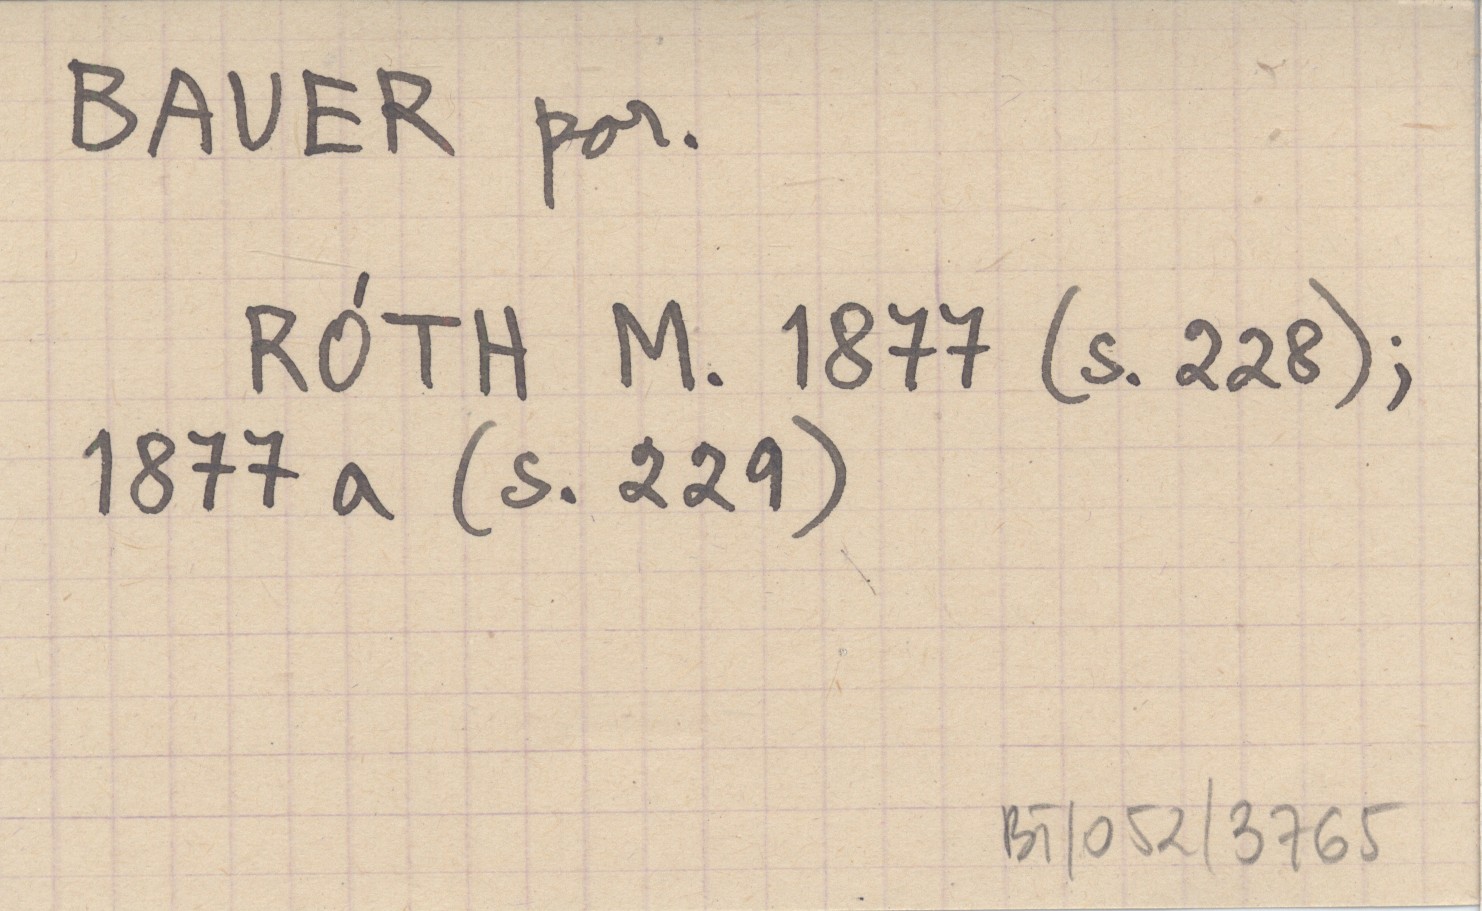 BAUER por.
RÓTH M. 1877 (s. 228);
1877 a (s. 229)
BT/052/3765